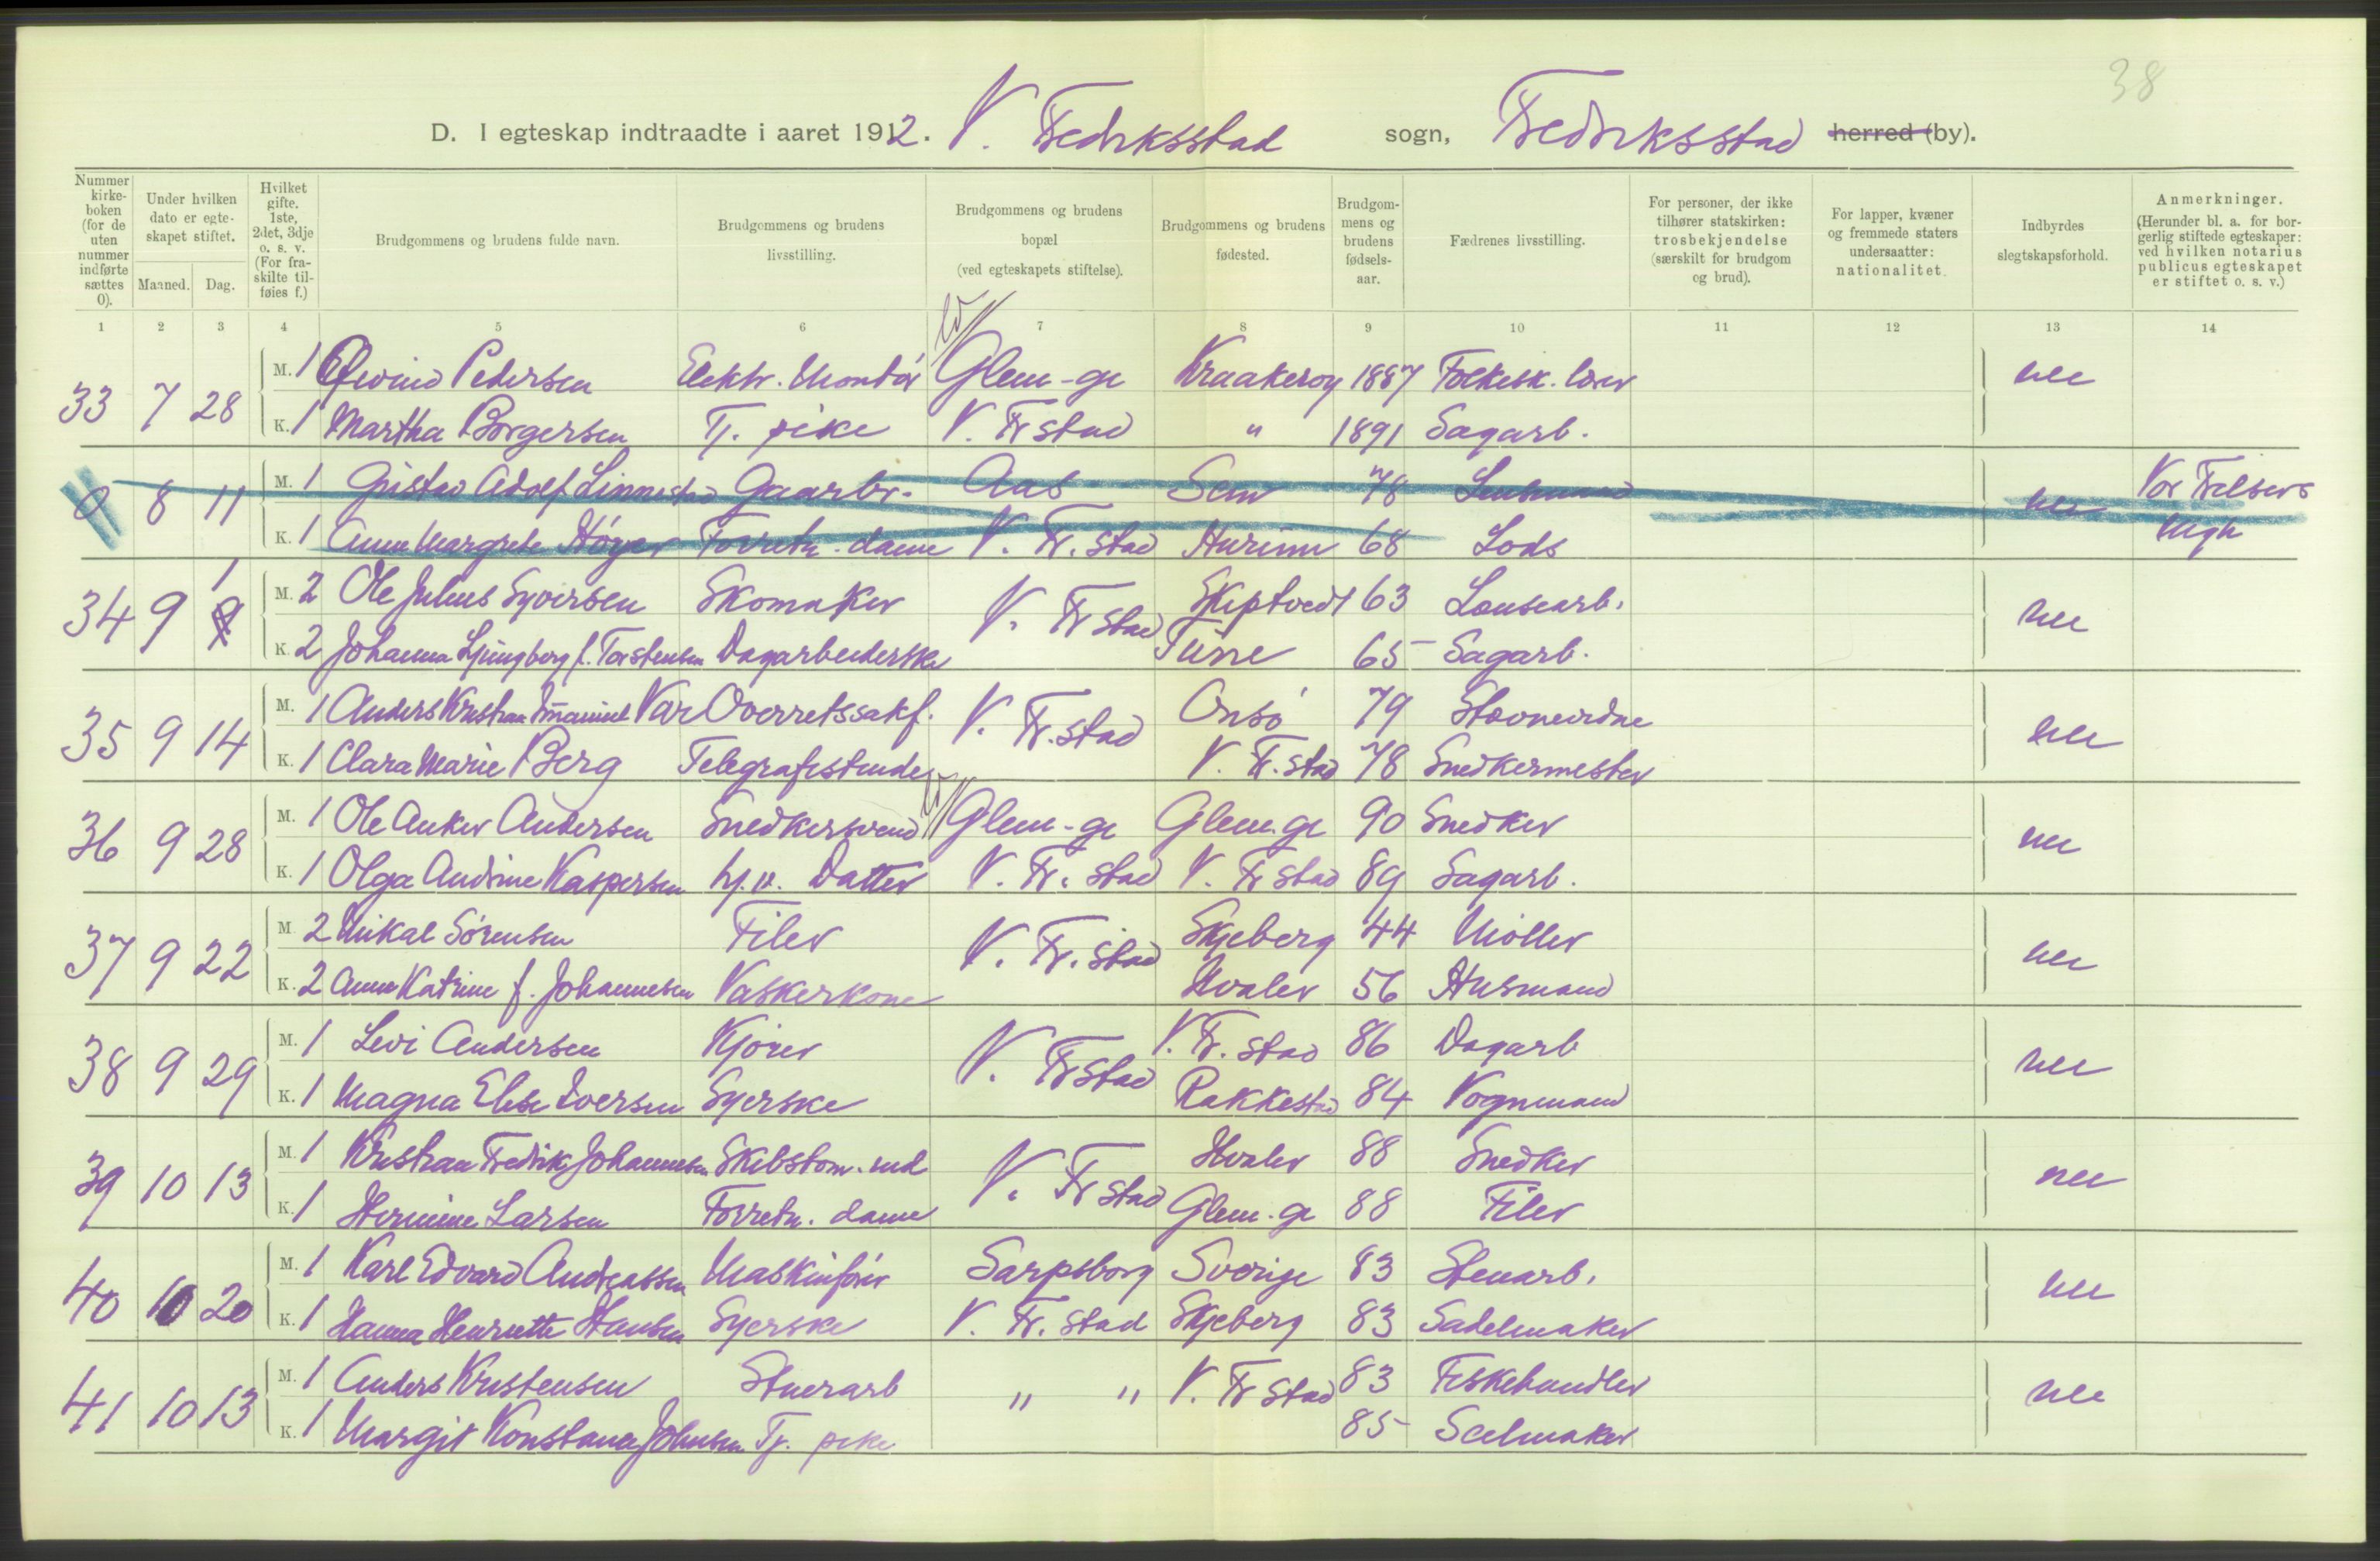 38
D. I egteskap indtraadte i aaret 1912. V. Fredrksstad sogn, Fredriksstad herred (by).
Nummer kirke-boken (for de uten nummer indførte sættes 0). Under hvilken dato er egte-skapet stiftet. Maaned. Dag. Hvilket gifte. 1ste, 2det, 3dje o. s. v. (For fra-skilte til-føies f.) Brudgommens og brudens fulde navn. Brudgommens og brudens livsstilling. Brudgommens og brudens bopæl (ved egteskapets stiftelse). Brudgommens og brudens fødested. Brudgom-mens og brudens fødsels-aar. Fædrenes livsstilling. For personer, der ikke tilhører statskirken: trosbekjendelse (særskilt for brudgom og brud). For lapper, kvæner og fremmede staters undersaatter: nationalitet. Indbyrdes slegtskapsforhold. Anmerkninger. (Herunder bl. a. for bor-gerlig stiftede egteskaper: ved hvilken notarius publicus egteskapet er stiftet o. s. v.)
1 2 3 4 5 6 7 8 9 10 11 12 13 14
33 7 28 M. 1 Øivind Pedersen Elektr. Montør Glem-ge Kraakerøy 1887 Folkesk. lærer nei
K. 1 Martha Borgersen Tj. pike V. Fr stad " 1891 Sagarb.
0 8 11 M. 1 Gustav Adolf Linnestad Gaardbr. Aas Sem 78 Lensmand nei Vor Frelsers
K. 1 Anna Margrete Høyer Forretn. dame V. Fr. stad Hurum 68 Lods
34 9 1 M. 2 Ole Julius Syversen Skomaker V. Fr stad Skiptvedt 63 Lousearb. nei
K. 2 Johanna Ljungberg f. Torstensen Dagarbeiderske Tune 65 Sagarb.
35 9 14 M. 1 Anders Kristian Emanuel Var Overretssakf. V. Fr. stad Onsö 79 Stævnevidne nei
K. 1 Clara Marie Berg Telegrafistinde V. Fr. stad 78 Snedkermester
36 9 28 M. 1 Ole Anker Andersen Snedkersvend Glem-ge Glem.ge 90 Snedker nei
K. 1 Olga Andrine Kaspersen hj. v. Datter V. Fr. stad V. Fr stad 89 Sagarb.
37 9 22 M. 2 Mikal Sörensen Filer V. Fr. stad Skjeberg 44 Möller nei
K. 2 Anne Katrine f. Johannesen Vaskerkone Hvaler 56 Husmand
38 9 29 M. 1 Levi Andersen Kjörer V. Fr stad V. Fr. stad 86 Dagarb nei
K. 1 Magna Elise Iversen Syerske Rakkestad 84 Vognmand
39 10 13 M. 1 Kristian Fredrik Johannesen Skibstøm. md V. Fr stad Hvaler 88 Snedker nei
K. 1 Hermine Larsen Forretn. dame Glem. ge 88 Filer
40 10 20 M. 1 Karl Edvard Andreassen Maskinförer Sarpsborg Sverige 83 Stenarb. nei
K. 1 Hanna Henriette Hansen Syerske V. Fr. stad Skjeberg 83 Sadelmaker
41 10 13 M. 1 Anders Kristensen Stuerarb " " V. Fr stad 83 Fiskehandler nei
K. 1 Margit Konstance Johnsen Tj. pike 85 Seilmaker